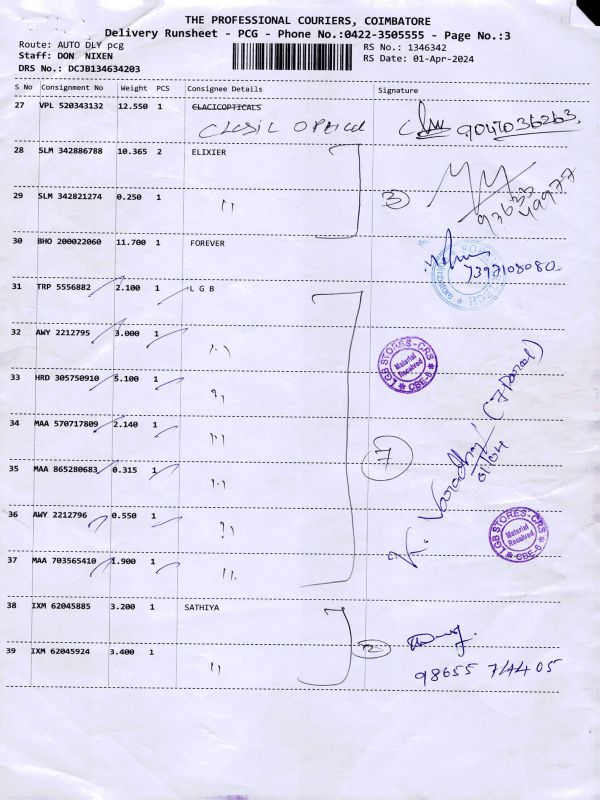 THE PROFESSIONAL COURIERS, COIMBATORE
Delivery Runsheet - PCG - Phone No.:0422-3505555 - Page No.:3
Route: AUTO DLY pcg
RS No.: 1346342
Staff: DON NIXEN
RS Date: 01-Apr-2024
DRS No.: DCJB134634203
S No Consignment No Weight PCS Consignee Details Signature
27 VPL 520343132 12.550 1 CLACICOPTICALS
9047036263
28 SLM 342886788 10.365 2 ELIXIER
3
29 SLM 342821274 0.250 1 "
30 BHO 200022060 11.700 1 FOREVER
7397108080
31 TRP 5556882 2.100 1 L G B
32 AWY 2212795 3.000 1 "
LGB STORES-CRS
Material
Received
CBE-6
33 HRD 305750910 5.100 1 "
34 MAA 570717809 2.140 1 "
(7 Parcel)
7
01/04
35 MAA 865280683 0.315 1 "
36 AWY 2212796 0.550 1 "
LGB STORES-CRS
Material
Received
CBE-6
37 MAA 703565410 1.900 1 "
38 IXM 62045885 3.200 1 SATHIYA
2
39 IXM 62045924 3.400 1 "